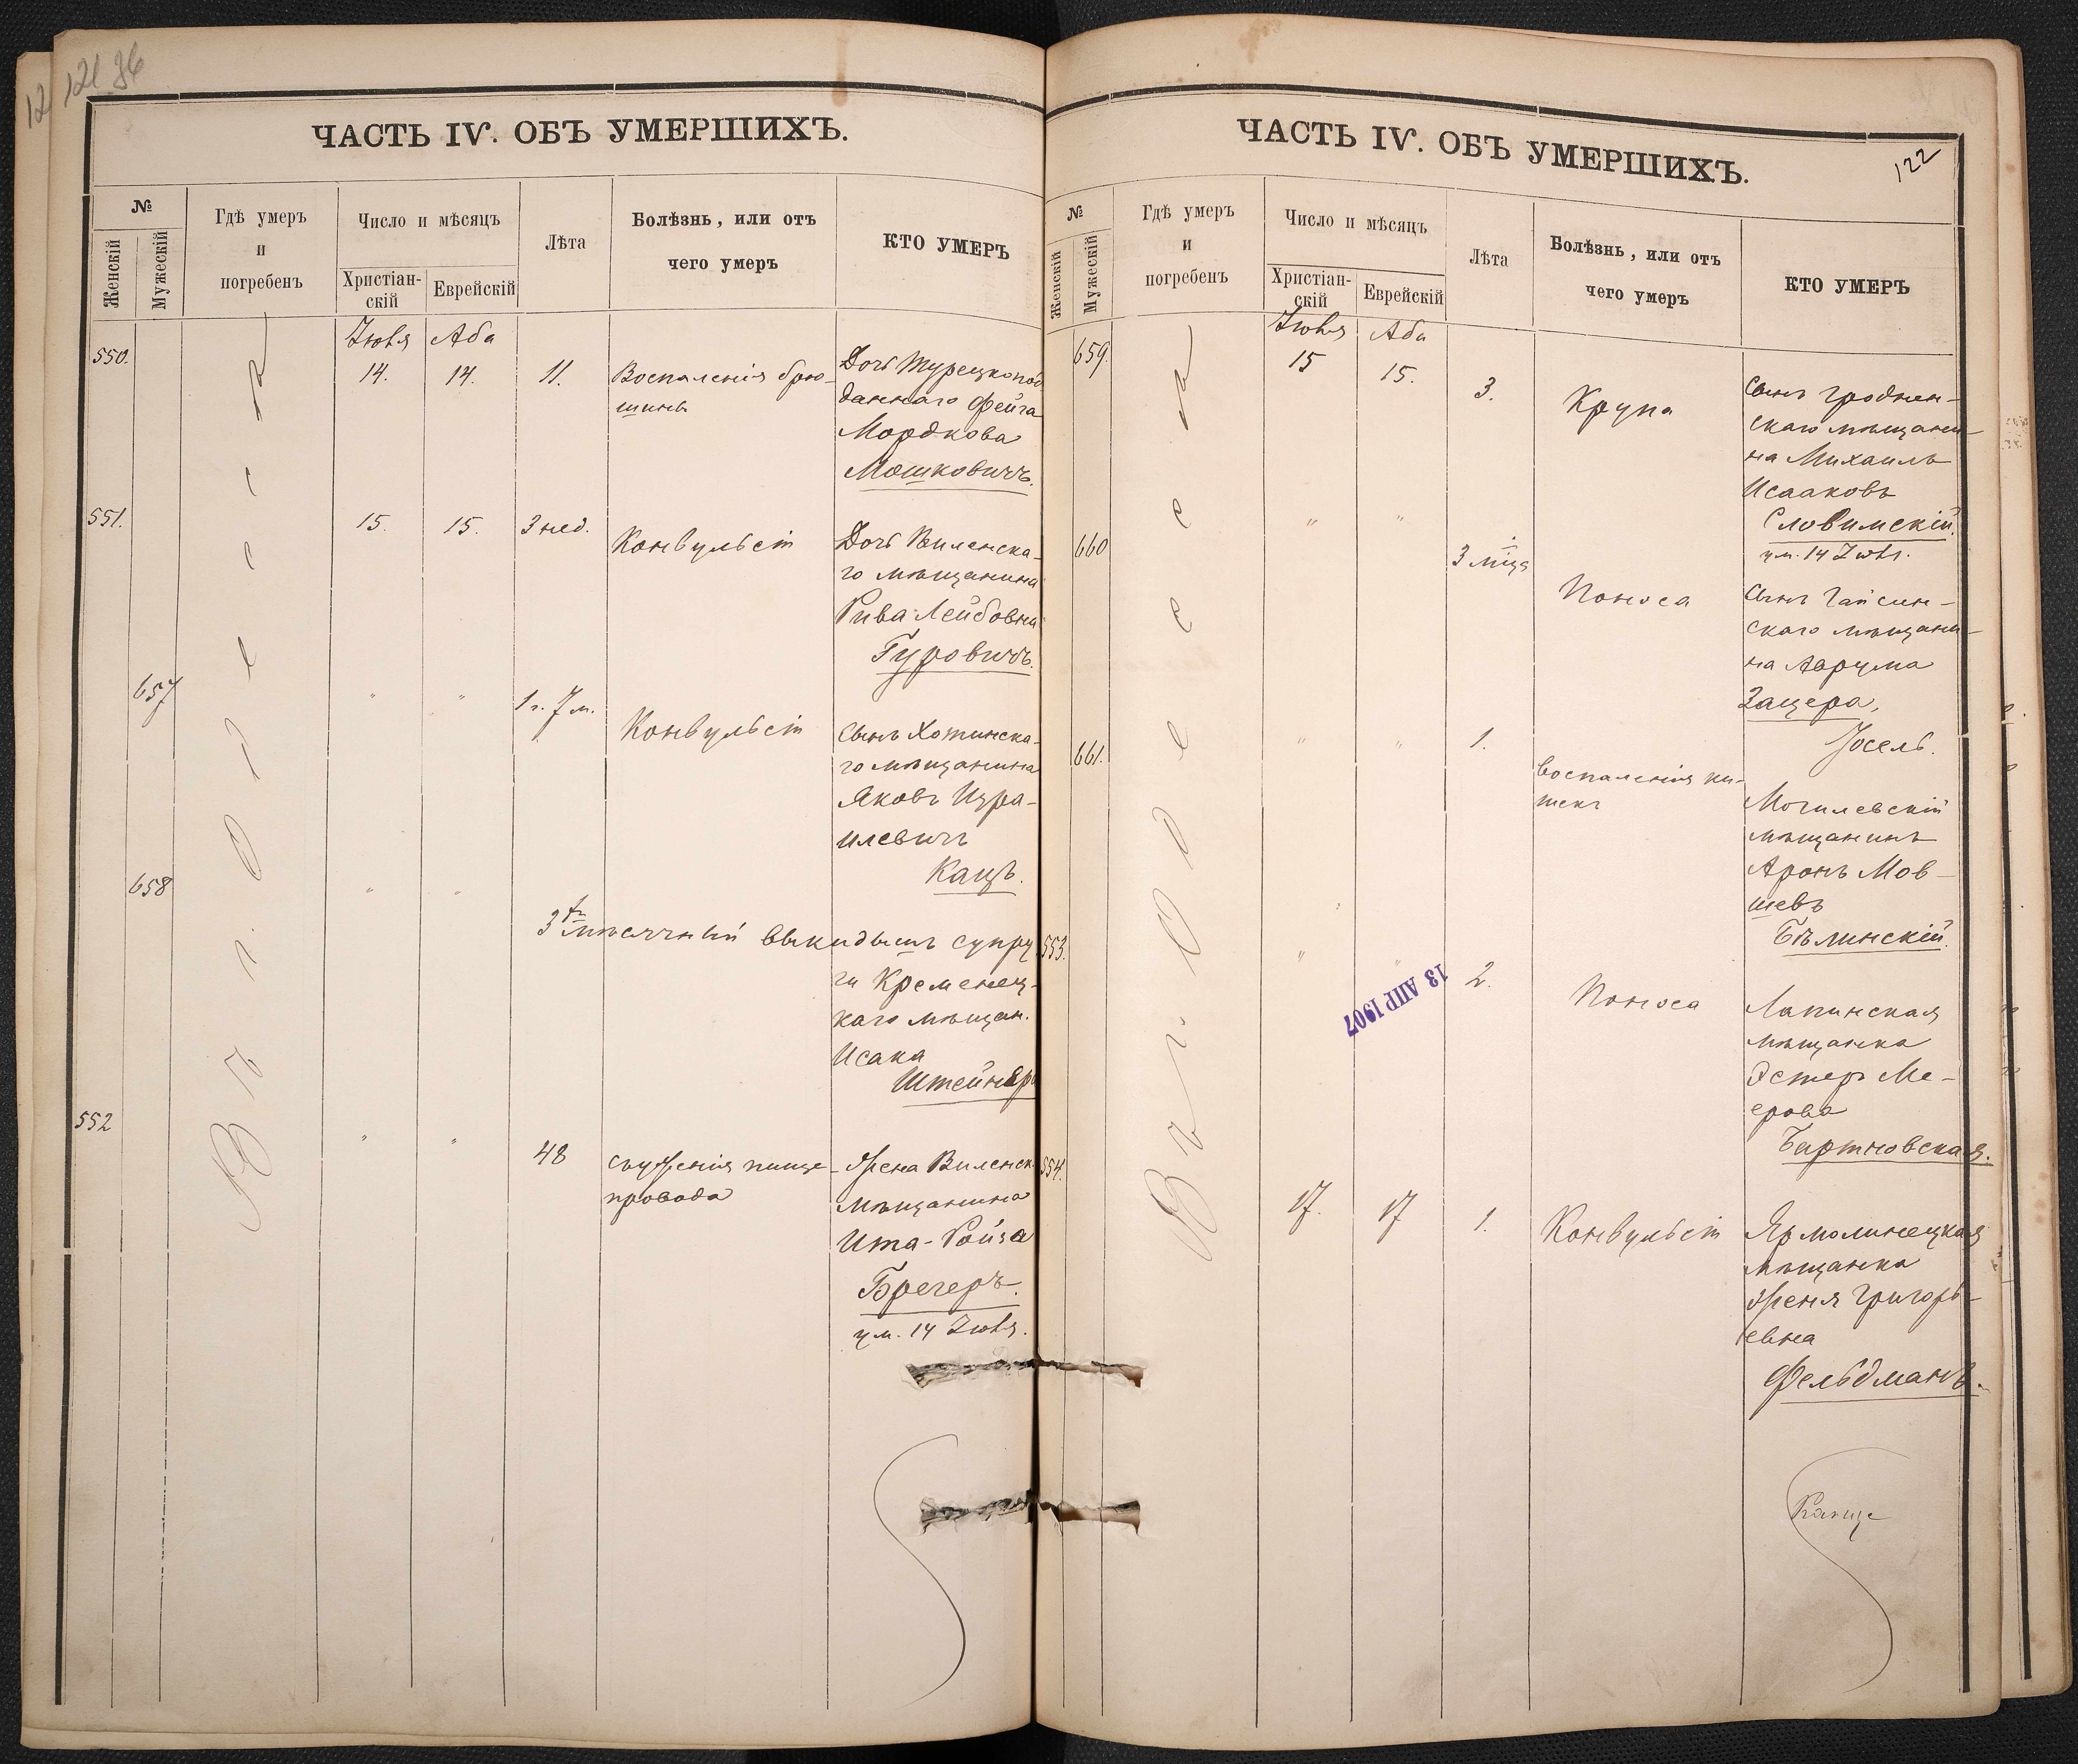 12 121 36
ЧАСТЬ IV. ОБЪ УМЕРШИХЪ.
№
Женскій
Мужескій
Гдѣ умеръ
и
погребенъ
Число и мѣсяцъ
Христіан-
скій
Еврейскій
Лѣта
Болѣзнь, или отъ
чего умеръ
КТО УМЕРЪ
Въ г. Одессѣ
Іюля Аба
550. 14. 14. 11. Воспаленія брю-
шины
Дочь Турецкопод
даннаго Фейга
Мордкова
Мошковичъ.
551. 15. 15. 3 нед. Конвульсіи
Дочь Виленска-
го мѣщанина
Рива Лейбовна
Гуровичъ.
657 " " 1 г. 7 м. Конвульсіи
Сынъ Хотинска-
го мѣщанина
Яковъ Изра-
илевичъ
Кацъ.
658 " "
3х мѣсячный выкидышъ супру
ги Кременец-
каго мѣщан.
Исака
Штейнеръ
552 " " 48 съуженія пище-
провода
Жена Виленск.
мѣщанина
Ита-Ройза
Брегеръ.
ум. 14 Іюля.
122
ЧАСТЬ IV. ОБЪ УМЕРШИХЪ.
№
Женскій
Мужескій
Гдѣ умеръ
и
погребенъ
Число и мѣсяцъ
Христіан-
скій
Еврейскій
Лѣта
Болѣзнь, или отъ
чего умеръ
КТО УМЕРЪ
Въ г. Одессѣ
Іюля Аба
659. 15 15. 3. Крупа
Сынъ Гроднен-
скаго мѣщани-
на Михаилъ
Исааковъ
Словимскій.
ум. 14 Іюл.
660 " " 3 мца Поноса
Сынъ Гайсин-
скаго мѣщани-
на Аврума
Зацера,
Іосель.
661. " " 1. воспаленія ки-
шекъ
Могилевскій
мѣщанинъ
Аронъ Мов-
шевъ
Бѣлинскій.
553. " " 2. Поноса
13 АПР 1907
Лапинская
мѣщанка
Эстеръ Ме-
ерова
Бартновская.
554. 17. 17 1. Конвульсіи
Ярмолинецкая
мѣщанка
Женя Григорь-
евна
Фельдманъ.